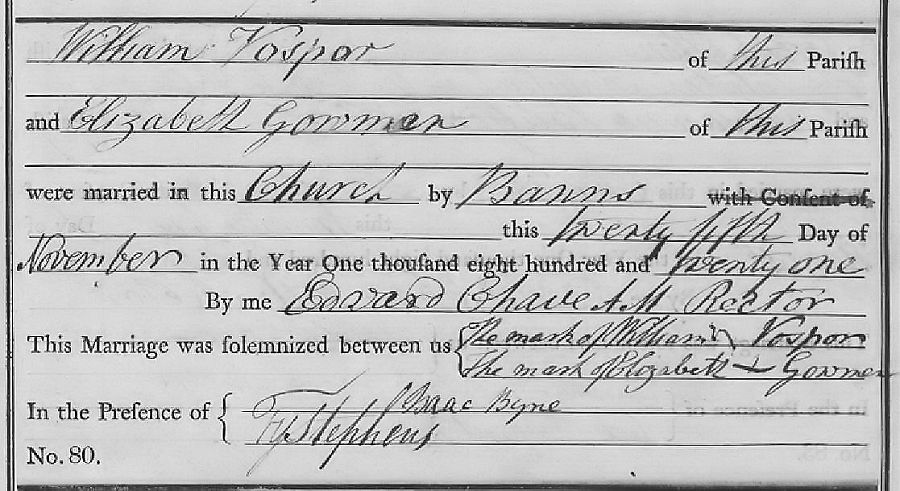 William Vospor of this Pariſh
and Elizabeth Gowmen of this Pariſh
were married in this Church by Banns with Conſent of
this twenty fifth Day of
November in the Year One thouſand eight hundred and twenty one
By me Edward Chave A M Rector
This Marriage was ſolemnized between us { The mark of William \ Vospor
The mark of Elizabeth + Gowmen
In the Preſence of { Isaac Byne
Stephens
No. 80.